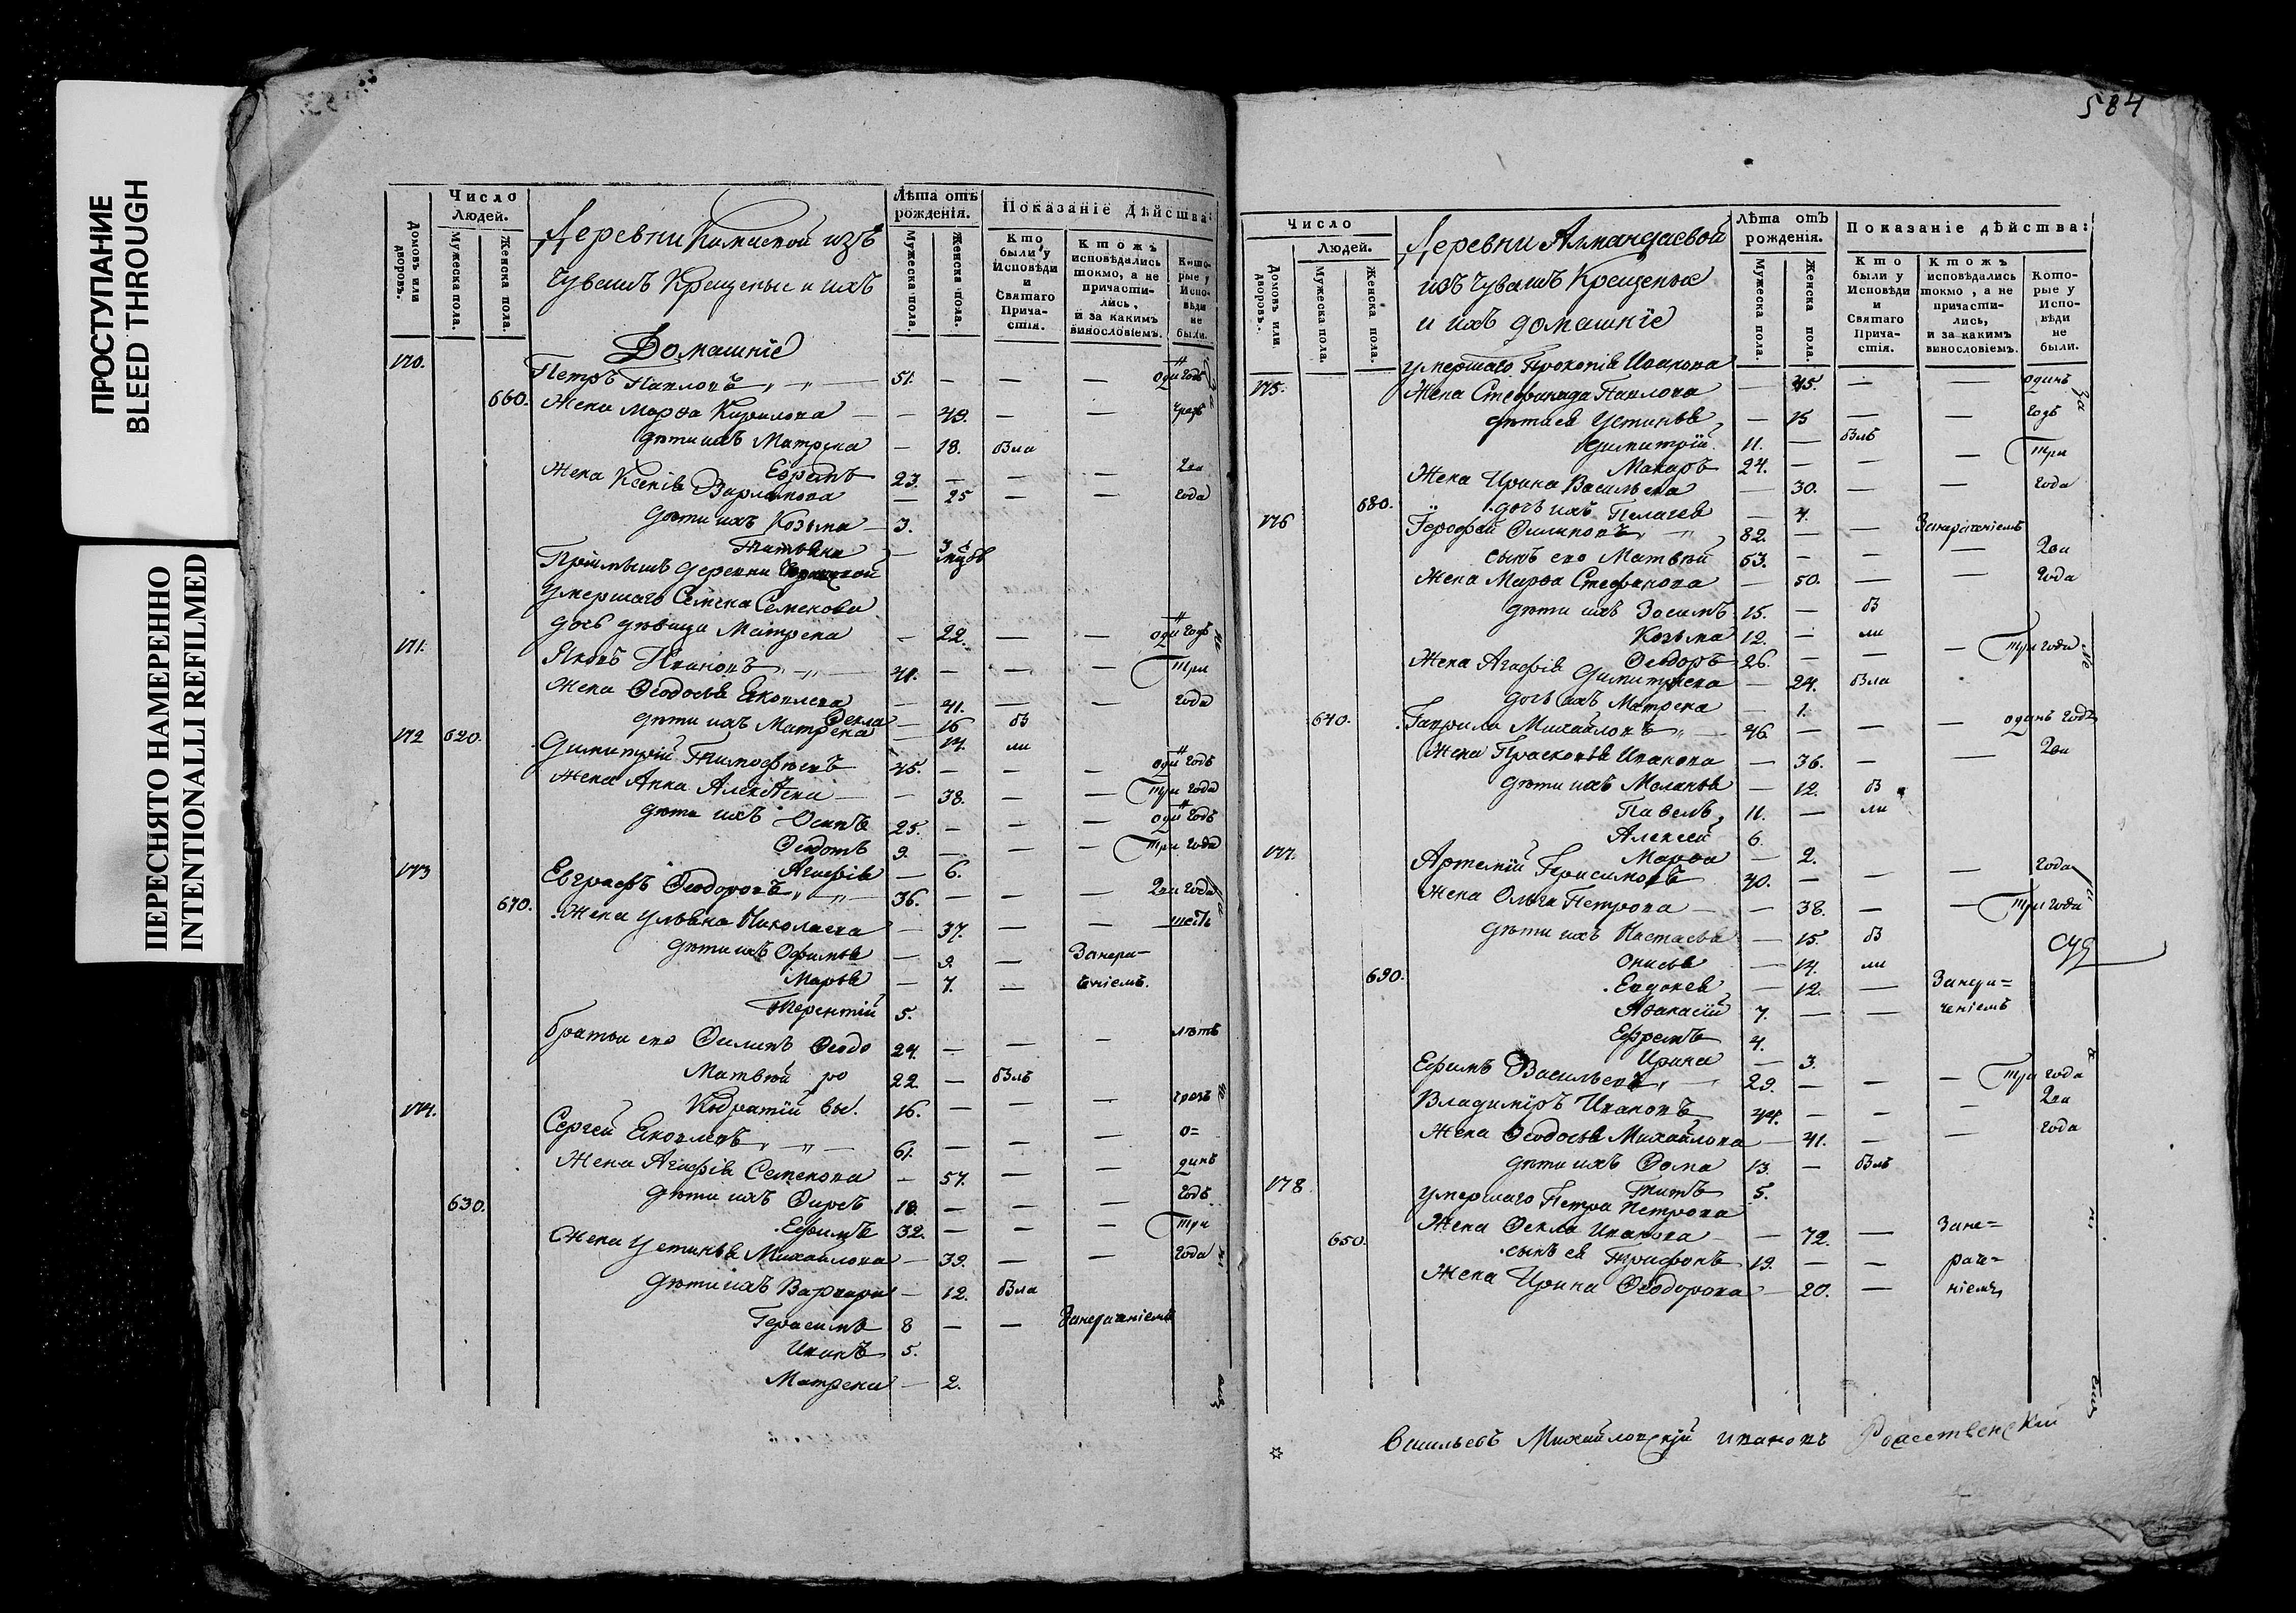 ПРОСТУПАНИЕ
BLEED THROUGH
ПЕРЕСНЯТО НАМЕРЕННО
INTENTIONALLI REFILMED
Домовъ или дворовъ.
Число Людей.
Мужеска пола.
Женска пола.
Деревни изъ
Чувашъ Крещеные и ихъ
Домашніе
Лѣта отъ рожденія.
Мужеска пола.
Женска пола.
Показаніе дѣйства:
Кто были у Исповѣди и Святаго Причастія.
Ктожъ исповѣдались токмо, а не причастились, и за какимъ винословіемъ.
Которые у Исповѣди не были.
170. Петръ Павловъ 51. — — — оди годъ
660. Жена Марѳа Кирилова — 49. — — чрезъ
дѣти ихъ Матрена — 18. была
Ефремъ 23. — — — два
Жена Ксенія Варламова — 25 — — года
дѣти ихъ Козьма 3.
Татьяна —
Пріимышъ деревни
умершаго Семена Семенова
дочь дѣвица Матрена — 22. — — оди годъ
171. Яковъ Ивановъ 41. — — — три
Жена Ѳеодосья Яковлева — 41. — — года
дѣти ихъ Ѳекла — 16 бы
Матрена — 14. ли
172 620. Димитрій Тимофѣевъ 45. — — — оди годъ
Жена Анна — 38. — — три года
дѣти ихъ Осипъ 25. — — — оди годъ
Ѳедотъ 9. — — — три года
Агафія — 6.
173 Евграфъ Ѳеодоровъ 36. — — — два года
670. Жена Ульяна Николаева — 37. — — шесть
дѣти ихъ Офимья — 9. — Занера-
Марья — 7. — ченіемъ.
Терентій 5.
братьи его Филипъ Ѳеодо 24. — — — лѣтъ
Матвѣй ро 22. — былъ
Кодратій вы. 16. — — — чрезъ
174. Сергей Яковлевъ 61. — — — о=
Жена Агафія Семенова — 57. — — динъ
630. дѣти ихъ Фирсъ 18. — — — годъ
Ефимъ 32. — — — три
Жена Устинья Михайлова — 39. — — года
дѣти ихъ Варвара — 12. была
Герасимъ 8 — — Занераченіемъ
Иванъ 5.
Матрена — 2.
584
Домовъ или дворовъ.
Число Людей.
Мужеска пола.
Женска пола.
Деревни Алмандаевой
изъ Чувашъ Крещеные
и ихъ домашніе
Лѣта отъ рожденія.
Мужеска пола.
Женска пола.
Показаніе дѣйства:
Кто были у Исповѣди и Святаго Причастія.
Ктожъ исповѣдались токмо, а не причастились, и за каким винословіемъ.
Которые у Исповѣди не были.
умершаго Прокопія Иванова
175. Жена Стефанида Павлова — 45. — — одинъ
дѣти ея Устинья — 15 — — годъ
Димитрій 11. — былъ
Макаръ 24. — — — три
Жена Ирина Васильева — 30. — — года
680. дочь ихъ Пелагея — 4.
176 Ерофей Филиповъ 82. — — Занераченіемъ
сынъ его Матвѣй 53. — — — два
Жена Марѳа Стефанова — 50. — — года
дѣти ихъ Зосимъ 15. — бы
Козьма 12. — ли
Ѳеодоръ 26. — — — три года
Жена Агафія Димитріева — 24. была
дочь ихъ Матрена — 1.
640. Гаврила Михайловъ 46. — — — одинъ годъ
Жена Прасковья Иванова — 36. — — два
дѣти ихъ Маланья — 12. бы
Павелъ 11. — ли
Алексей 6.
Марѳа — 2.
177. Артемій Герасимовъ 40. — — — года
Жена Ольга Петрова — 38. — — три года
дѣти ихъ Настасья — 15. бы
Онисья — 14. ли
690. Евдокея — 12. — Занера=
Аѳанасій 7. — — ченіемъ
Ефремъ 4.
Ирина — 3.
Ефимъ Васильевъ 29. — — — три года
Владимиръ Ивановъ 44. — — — два
Жена Ѳеодосья Михайлова — 41. — — года
дѣти ихъ Ѳома 13. — былъ
Титъ 5.
178 умершаго Петра Петрова
Жена Ѳекла Иванова — 72. — Зане=
650. сынъ ея Трифонъ 19. — — раче=
Жена Ирина Ѳеодорова — 20. — ніемъ
Васильевъ Михайловскій Ивановъ